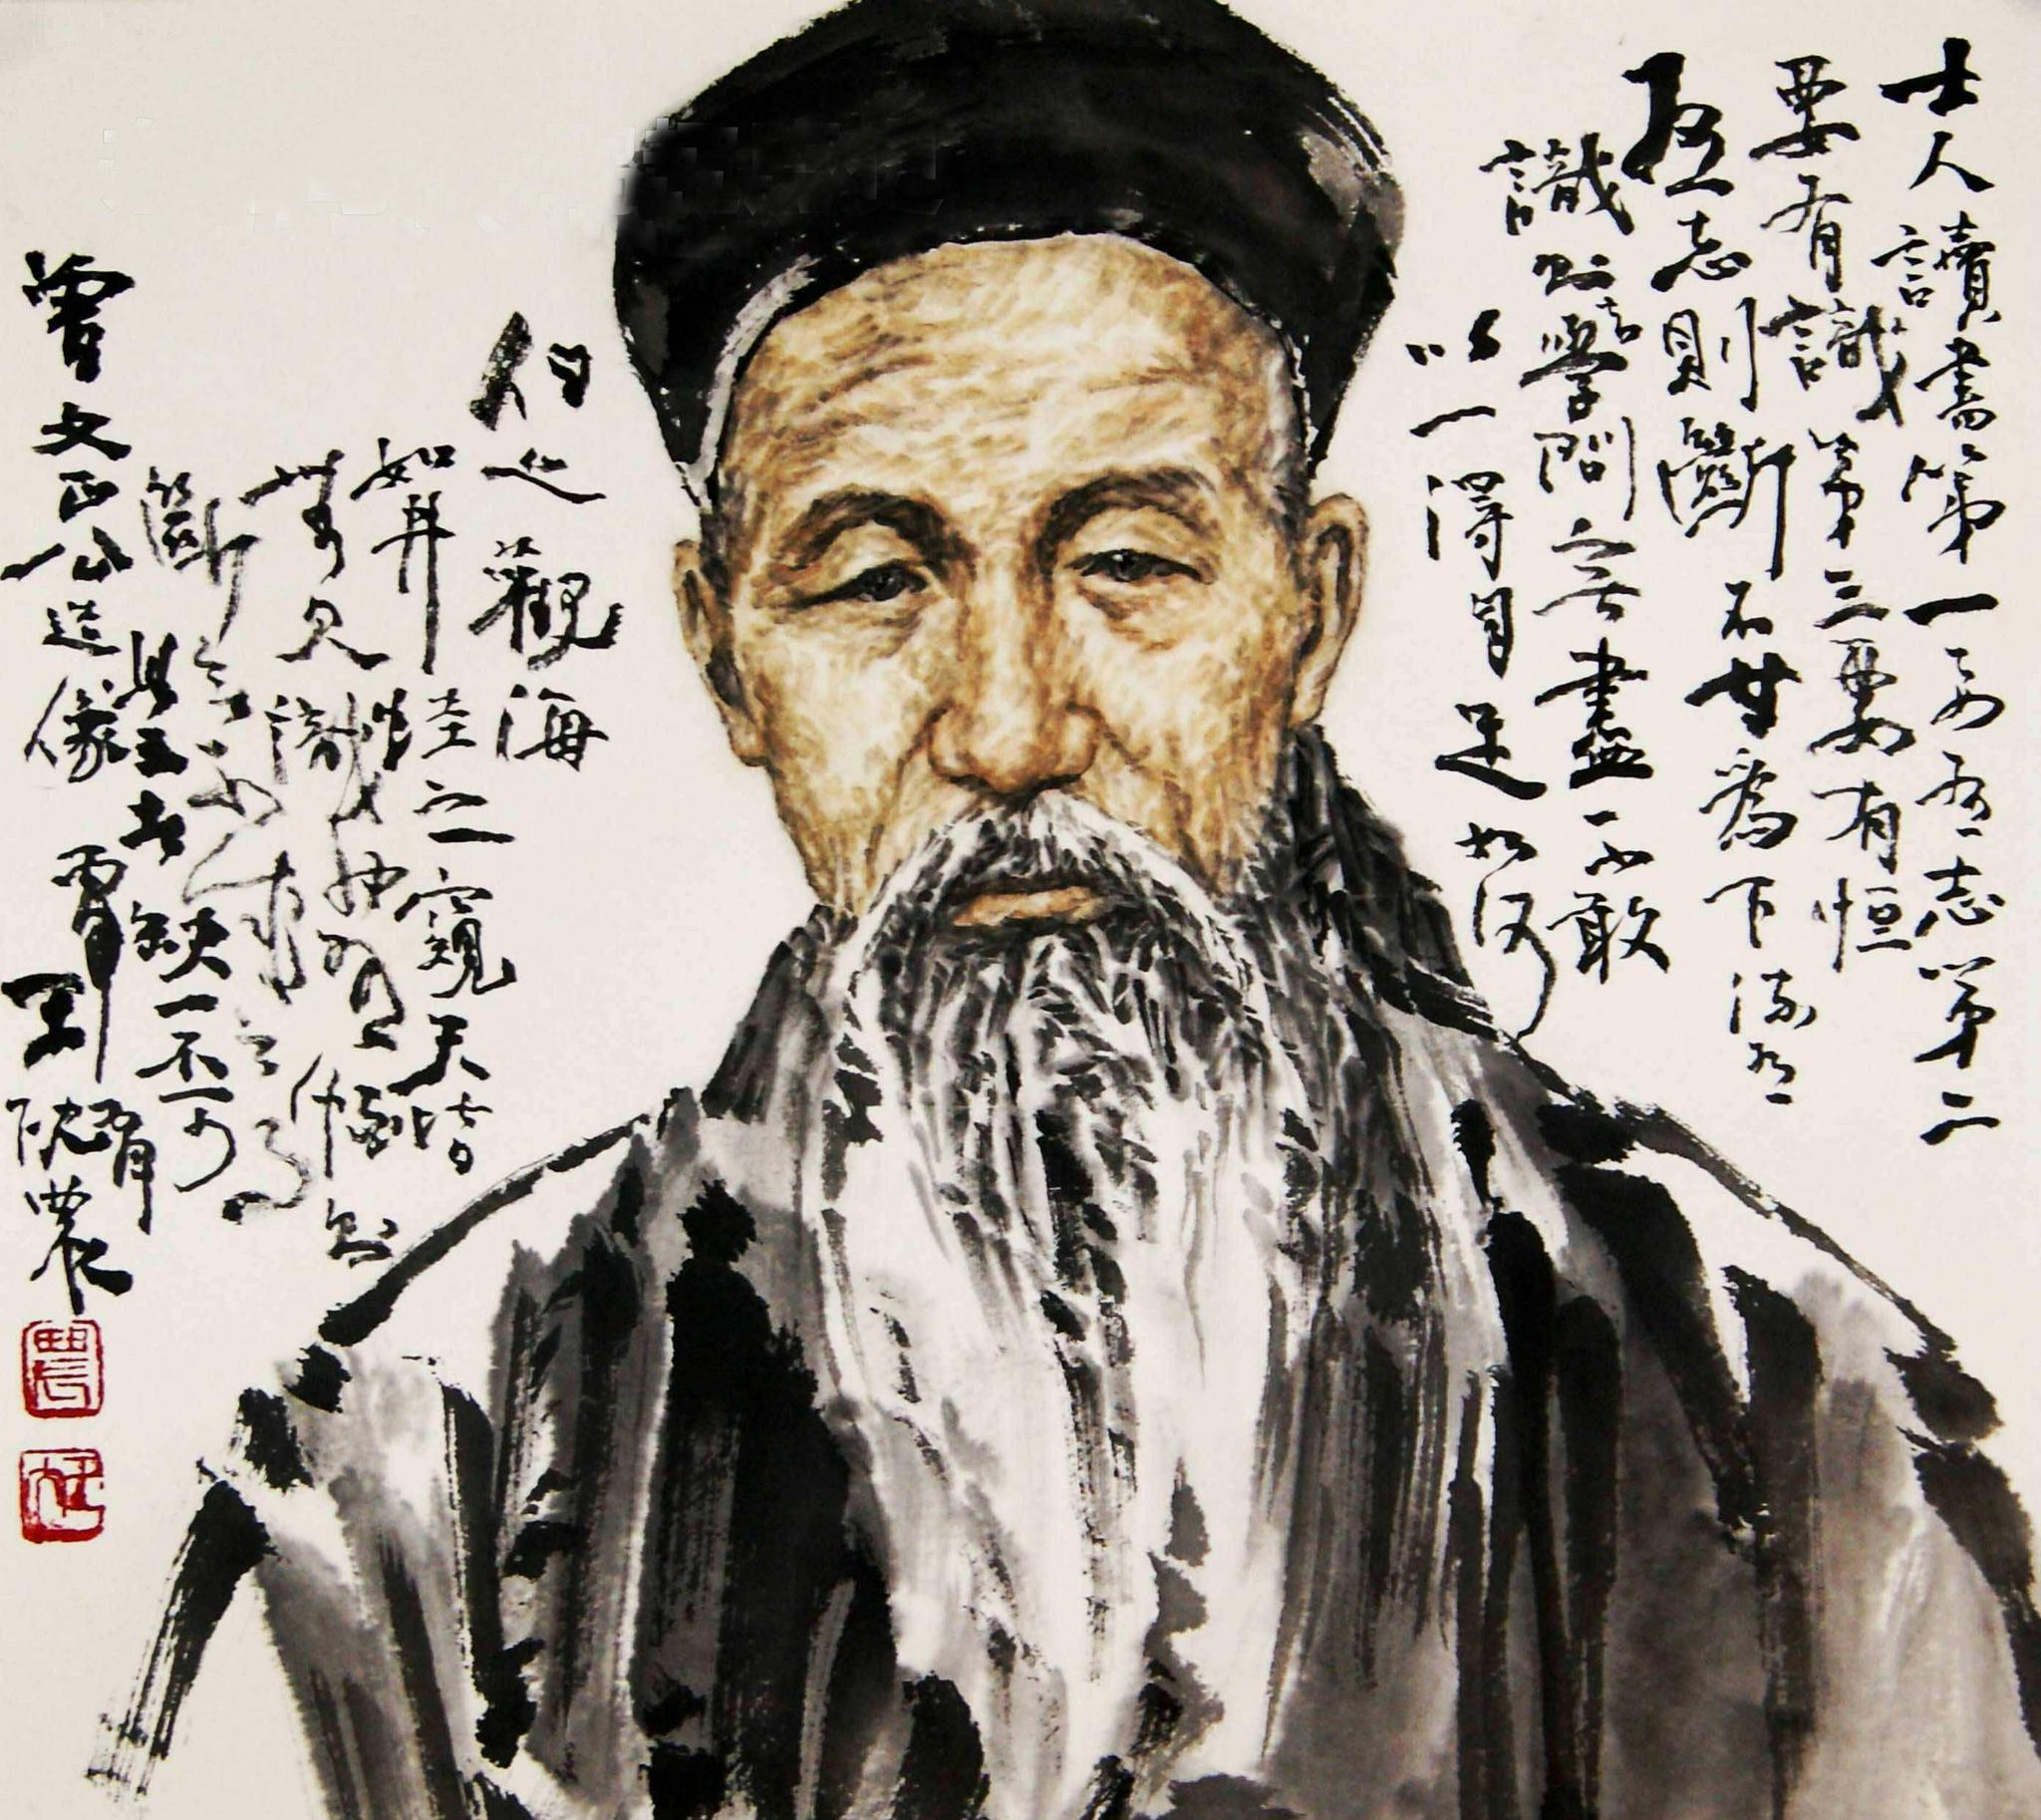 士人讀書第一要有志第二
要有識第三要有恒
有志則斷不甘爲下流有
識則知學問無盡不敢
以一得自足如河
伯之觀海
如井蛙之窺天皆
無見識也有恒則
斷無不成之事
此三者缺一不可
曾文正公造像
農